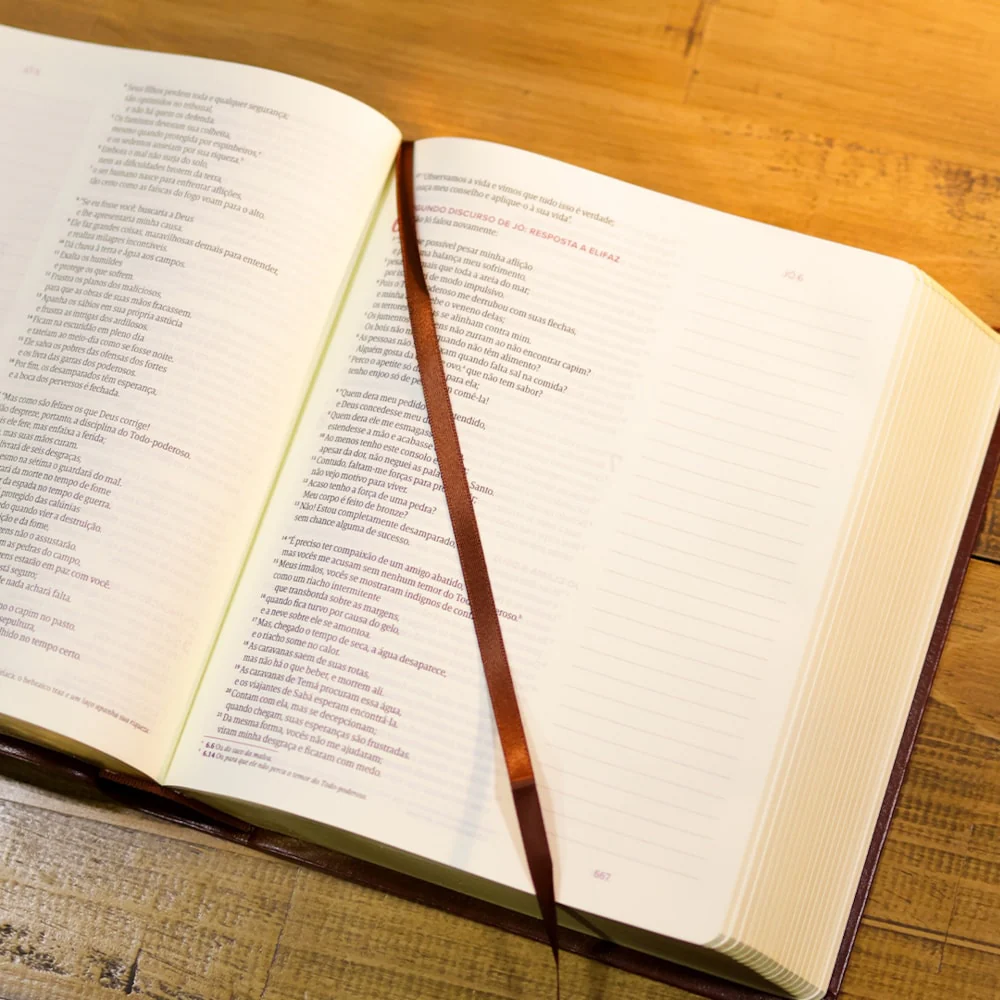 ⁴ Seus filhos perdem toda e qualquer segurança;
são oprimidos no tribunal,
e não há quem os defenda.
⁵ Os famintos devoram sua colheita,
mesmo quando protegida por espinheiros,
e os sedentos anseiam por sua riqueza.
⁶ Embora o mal não surja do solo,
nem as dificuldades brotem da terra,
⁷ o ser humano nasce para enfrentar aflições,
tão certo como as faíscas do fogo voam para o alto.
⁸ "Se eu fosse você, buscaria a Deus
e lhe apresentaria minha causa.
⁹ Ele faz grandes coisas, maravilhosas demais para entender,
e realiza milagres incontáveis.
¹⁰ Dá chuva à terra e água aos campos;
¹¹ Exalta os humildes
e protege os que sofrem.
¹² Frustra os planos dos maliciosos,
para que as obras de suas mãos fracassem.
¹³ Apanha os sábios em sua própria astúcia
e frustra as intrigas dos ardilosos.
¹⁴ Ficam na escuridão em pleno dia
e tateiam ao meio-dia como se fosse noite.
¹⁵ Ele salva os pobres das ofensas dos fortes
e os livra das garras dos poderosos.
¹⁶ Por fim, os desamparados têm esperança,
e a boca dos perversos é fechada.
"Mas como são felizes os que Deus corrige!
despreze, portanto, a disciplina do Todo-poderoso.
ele fere, mas enfaixa a ferida;
mas suas mãos curam.
livrará de seis desgraças,
mesmo na sétima o guardará do mal.
da morte no tempo de fome
da espada no tempo de guerra.
protegido das calúnias
quando vier a destruição.
e da fome,
não o assustarão.
as pedras do campo,
estarão em paz com você.
está seguro;
nada achará falta.
o capim no pasto.
sepultura,
no tempo certo.
o hebraico traz
"Observamos a vida e vimos que tudo isso é verdade;
ouça meu conselho e aplique-o à sua vida".
SEGUNDO DISCURSO DE JÓ: RESPOSTA A ELIFAZ
Jó falou novamente:
possível pesar minha aflição
balança meu sofrimento,
mais que toda a areia do mar;
por de modo impulsivo.
Pois o me derrubou com suas flechas,
e minha o veneno delas;
os terrores se alinham contra mim.
⁵ Os jumentos não zurram ao não encontrar capim?
Os bois não quando não têm alimento?
⁶ As pessoas não quando falta sal na comida?
Alguém gosta da ovo, que não tem sabor?
⁷ Perco o apetite só para ela;
tenho enjoo só de comê-la!
⁸ "Quem dera meu pedido
e Deus concedesse meu
⁹ Quem dera ele me esmagasse,
estendesse a mão e acabasse
¹⁰ Ao menos tenho este consolo
apesar da dor, não neguei as Santo.
¹¹ Contudo, faltam-me forças para
não vejo motivo para viver.
¹² Acaso tenho a força de uma pedra?
Meu corpo é feito de bronze?
¹³ Não! Estou completamente desamparado,
sem chance alguma de sucesso.
¹⁴ "É preciso ter compaixão de um amigo abatido,
mas vocês me acusam sem nenhum temor do
¹⁵ Meus irmãos, vocês se mostraram indignos de
como um riacho intermitente
que transborda sobre as margens,
¹⁶ quando fica turvo por causa do gelo,
e a neve sobre ele se amontoa.
¹⁷ Mas, chegado o tempo de seca, a água desaparece,
e o riacho some no calor.
¹⁸ As caravanas saem de suas rotas,
mas não há o que beber, e morrem ali.
¹⁹ As caravanas de Temá procuram essa água,
e os viajantes de Sabá esperam encontrá-la.
²⁰ Contam com ela, mas se decepcionam;
quando chegam, suas esperanças são frustradas.
²¹ Da mesma forma, vocês não me ajudaram;
viram minha desgraça e ficaram com medo.
6.6 Ou do suco da malva.
6.14 Ou para que ele não perca o temor do Todo-poderoso.
JÓ 6
667